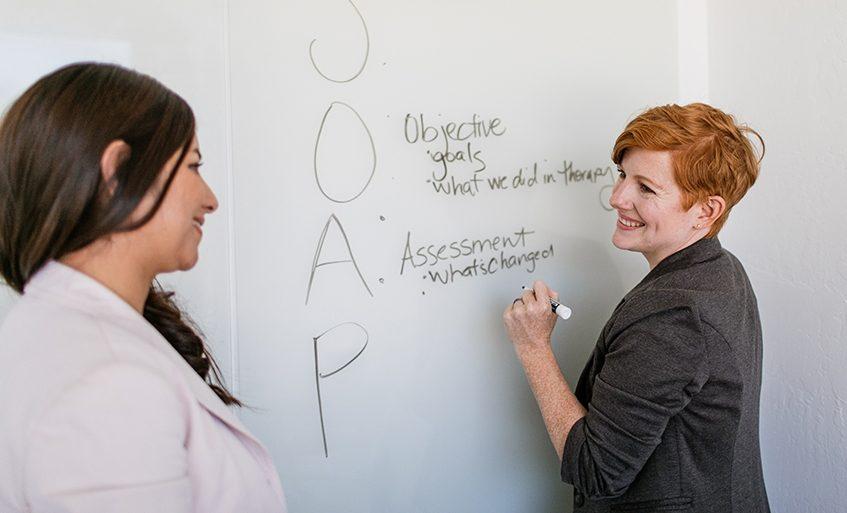 S:
O: Objective
· goals
· what we did in therapy
A: Assessment
· what's changed
·
P